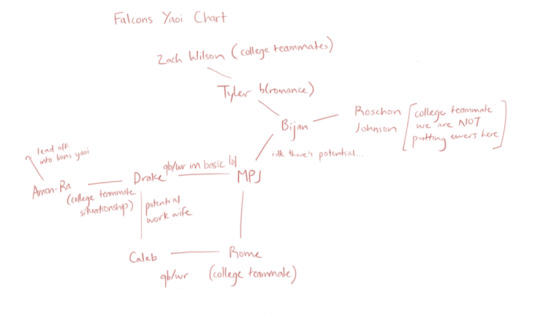 Falcons Yaoi Chart
Zach Wilson (college teammates)
Tyler b(romance)
Bijan
Roschon
Johnson
[college teammate
we are NOT
putting exes here]
idk there's potential...
lead off
into lions yaoi
Amon-Ra
(college teammate
situationship)
Drake
qb/wr im basic lol
MPJ
potential
work wife
Caleb
qb/wr
Rome
(college teammate)